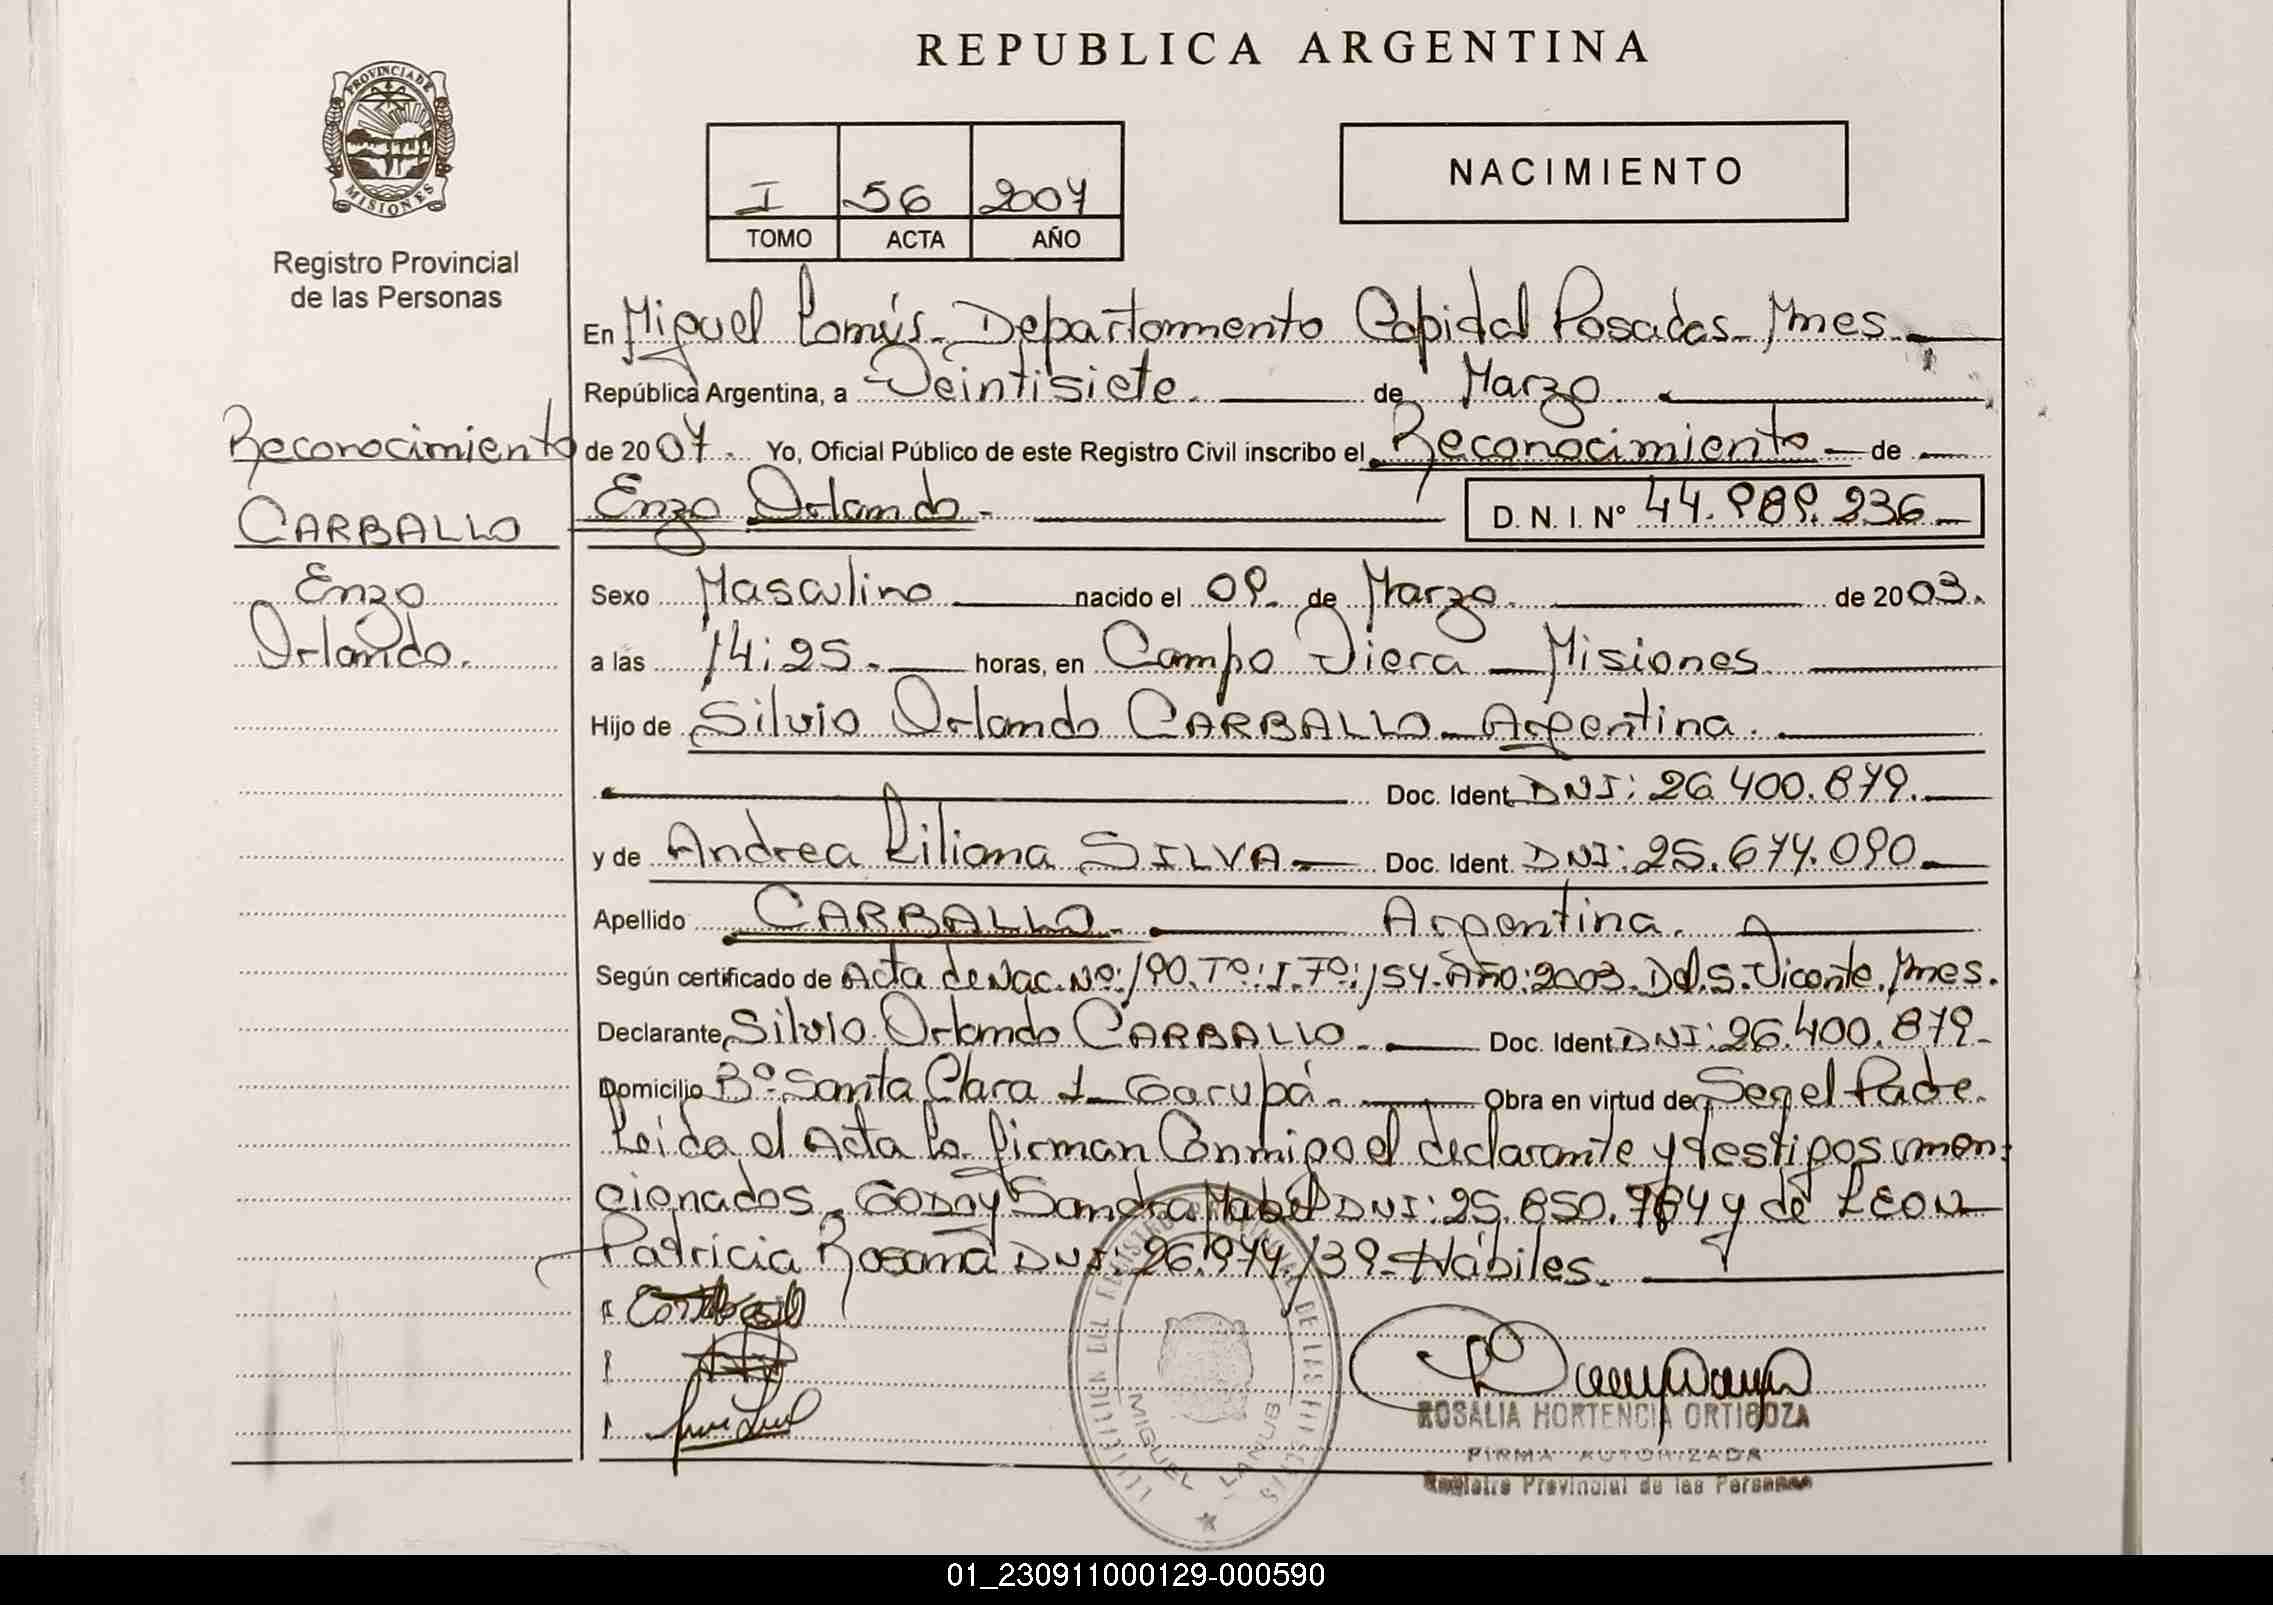 REPUBLICA ARGENTINA
PROVINCIA DE
MISIONES
Registro Provincial
de las Personas
I 56 2007
TOMO ACTA AÑO
NACIMIENTO
En Miguel Lanús - Departamento Capital Posadas - Mnes.
República Argentina, a Veintisiete. de Marzo.
de 2007. Yo, Oficial Público de este Registro Civil inscribo el Reconocimiento de
Enzo Orlando - D. N. I. Nº 44.989.236
Reconocimiento
CARBALLO
Enzo
Orlando.
Sexo Masculino nacido el 09. de Marzo. de 2003.
a las 14:25. horas, en Campo Viera - Misiones
Hijo de Silvio Orlando CARBALLO - Argentina.
Doc. Ident. DNI: 26.400.879.
y de Andrea Liliana SILVA - Doc. Ident. DNI: 25.677.090
Apellido CARBALLO. Argentina.
Según certificado de Acta de Nac. Nº: 190. Tº: I. Fº: 157. Año: 2003. Del. S. Vicente. Mnes.
Declarante Silvio Orlando CARBALLO - Doc. Ident. DNI: 26.400.879-
Domicilio Bº Santa Clara I - Garupá. Obra en virtud de Ser el Padre.
Leída el Acta la firman Conmigo el declarante y testigos men-
cionados. GODOY Sandra Mabel DNI: 25.850.784 y de LEON
Patricia Rosana DNI: 26.974.139 - Hábiles.
MIGUEL LANUS
ROSALIA HORTENCIA ORTIGOZA
FIRMA AUTORIZADA
Registro Provincial de las Personas
01_230911000129-000590